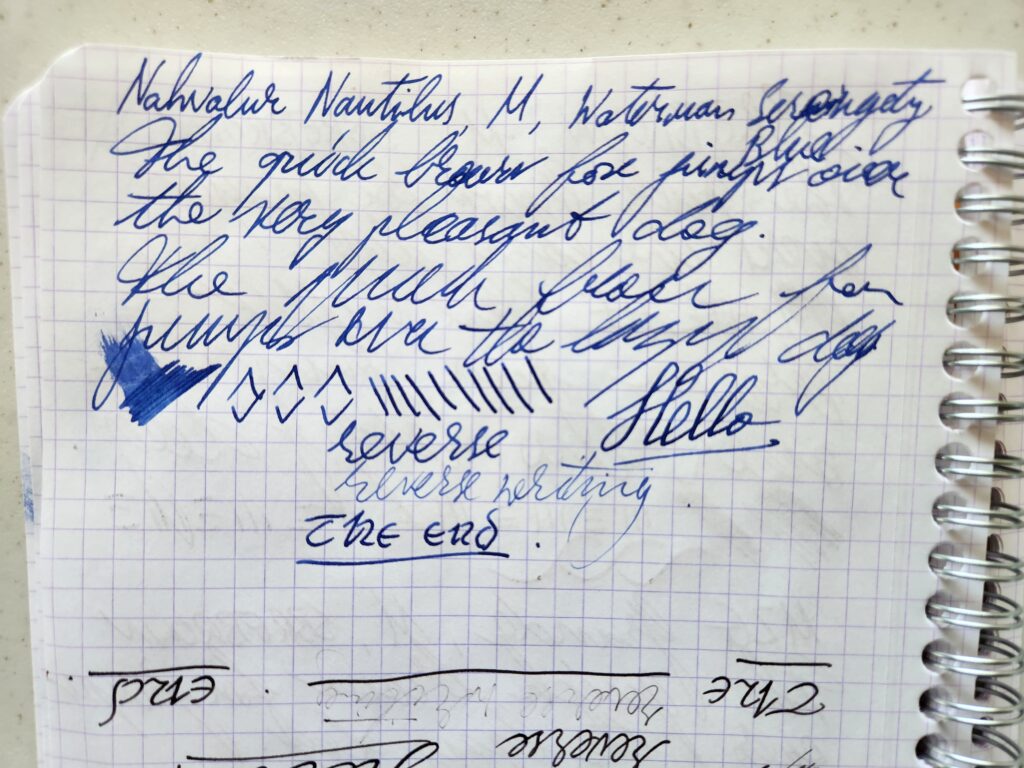 Nahvalur Nautilus, M, Waterman Serengety
Blue
The quick brown fox jumps over
the very pleasant dog.
The quick brown fox
jumps over the lazy dog
Hello
reverse
reverse writing
The end.
The end
reverse writing
reverse